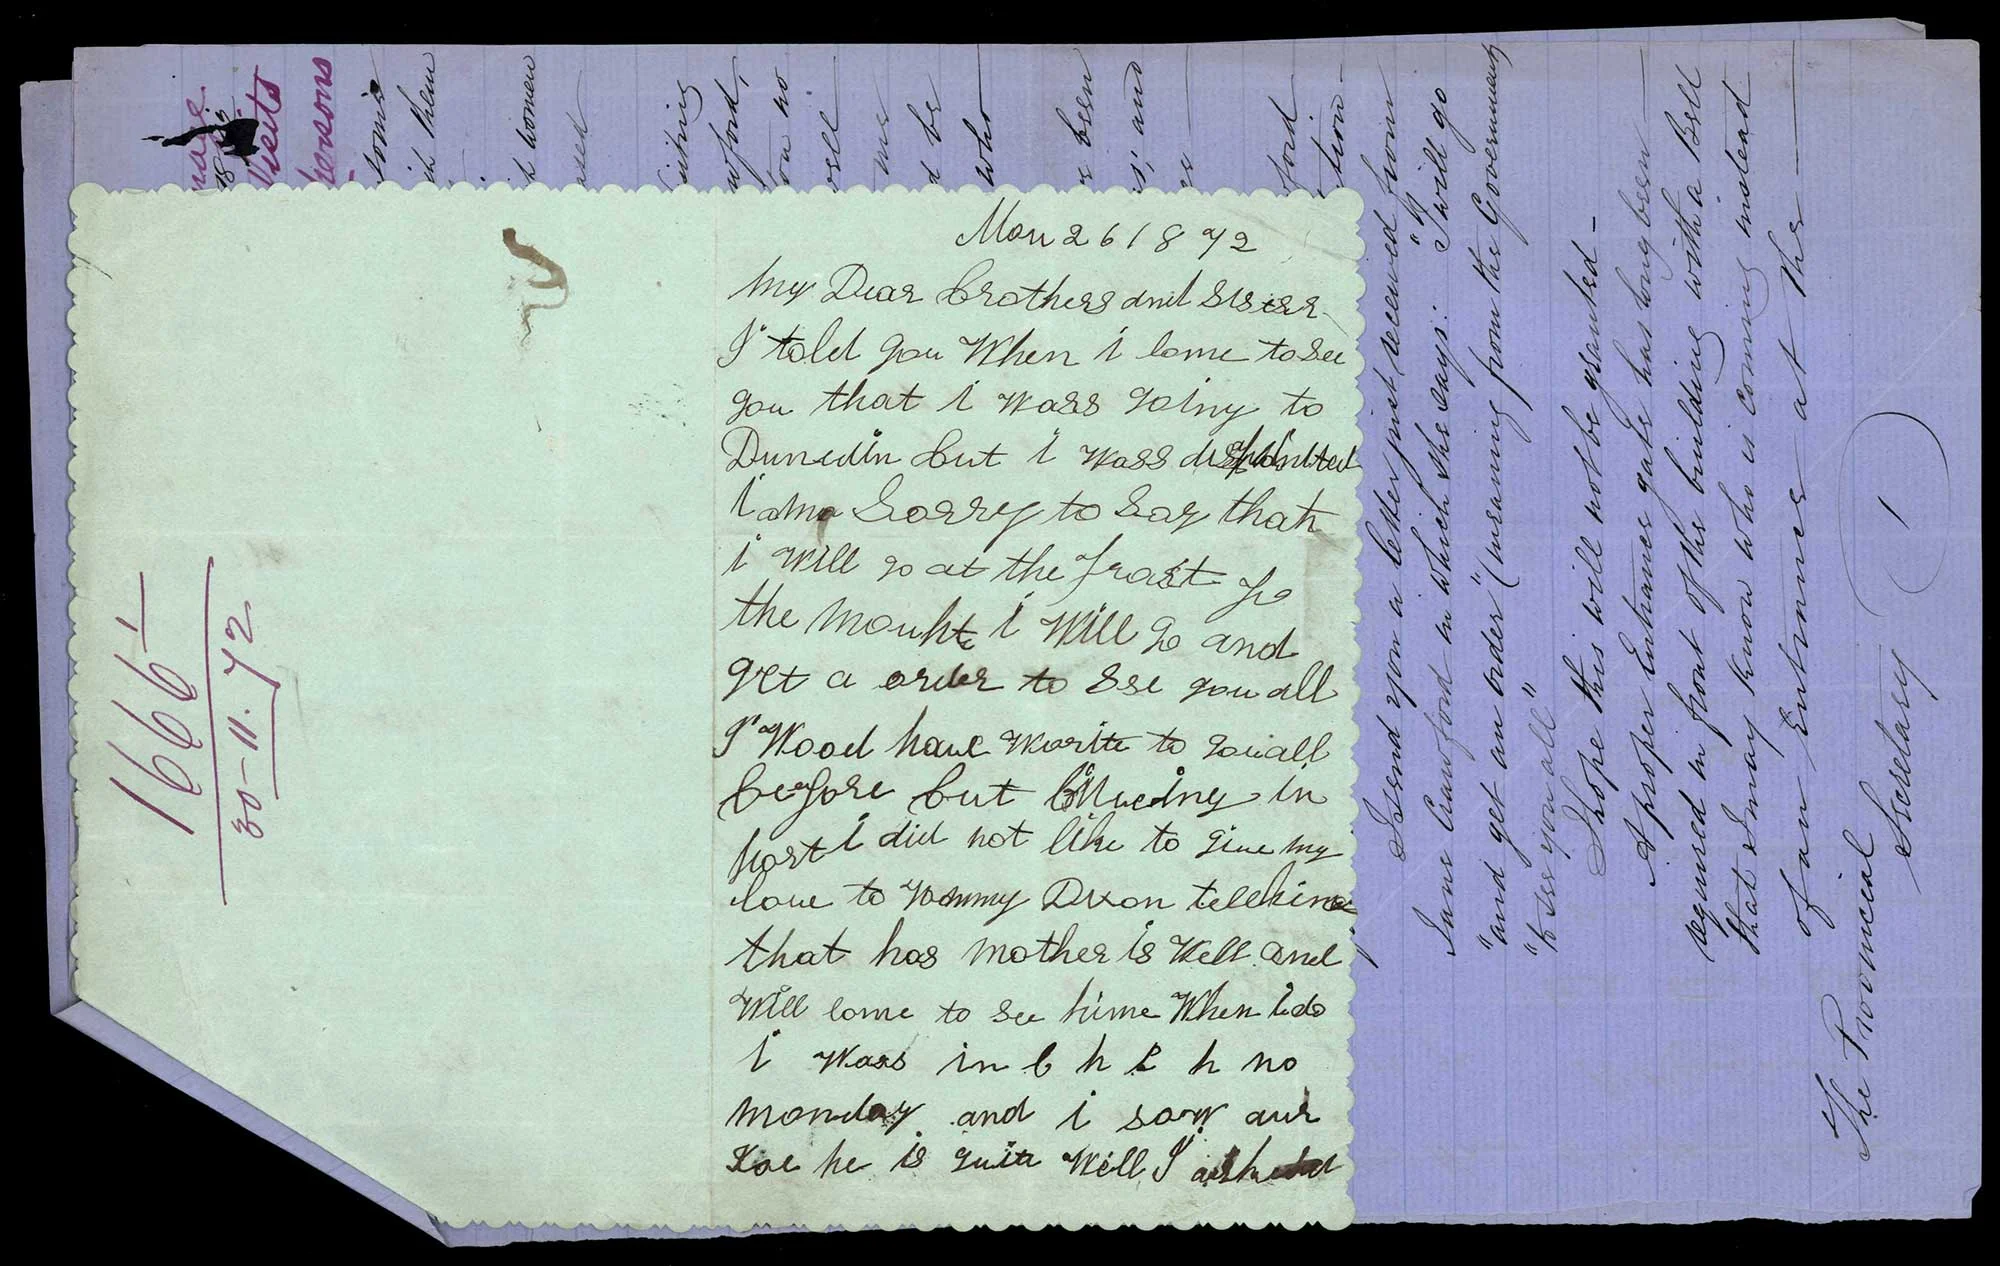 Mon 26 1872
My Dear brothers and Sisters
I told you When i come to See
you that i Wass going to
Dunedin but i Wass
i ama Sorrey to Say that
i Will go at the frast fo
the Mounht i Will go and
get a order to See you all
I Wood have Wwrite to you all
before but Blueing in
Port i did not like to give my
love to Tommy Dixon tell hime
that has Mother is Well and
Will come to see hime When i do
i Wass in Ch Ch no
Monday and i saw aur
Koe he is quite Well I
1666/1
30-11.72
Visits
persons
them
women
no
me
be
who
been
and
I send you a letter just received from
Jane Crawford in which she says: "I will go
"and get an order" (meaning from the Government)
"to see you all"
I hope this will not be granted—
A proper Entrance gate has long been
required in front of the building with a Bell
that I may know who is coming instead
of an Entrance at the—
The Provincial
Secretary